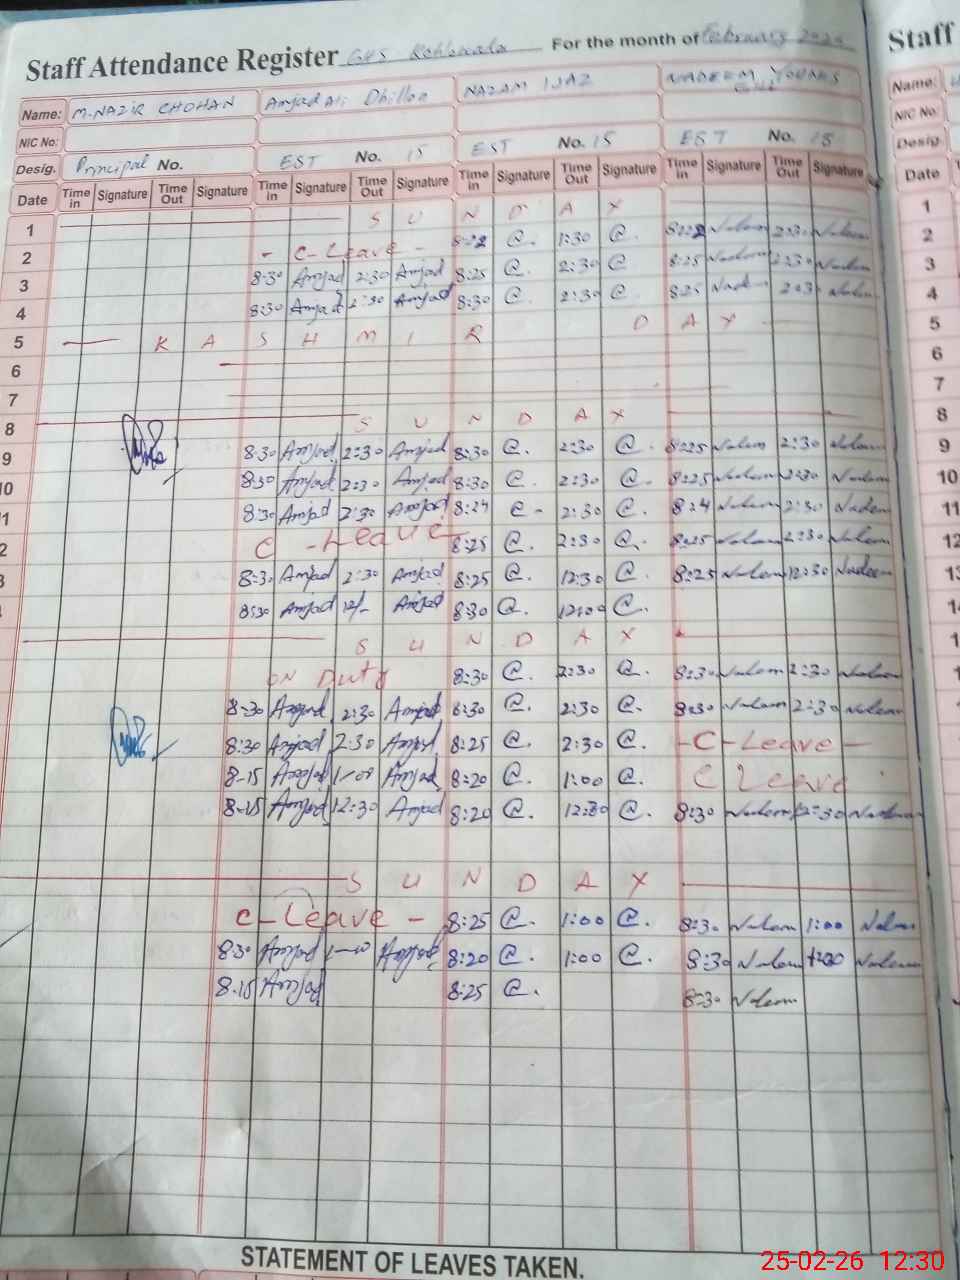 Staff Attendance Register GHS For the month of February
Staff
Name: M.NAZIR CHOHAN Amjad Ali Dhillon NAZAM IJAZ NADEEM YOUNAS Gill
Name:
NIC No:
NIC No:
Desig. Principal No. EST No. 15 EST No. 15 EST No. 15
Desig.
Date Time in Signature Time Out Signature Time in Signature Time Out Signature Time in Signature Time Out Signature Time in Signature Time Out Signature
Date
1 S U N D A Y 1
2 - C-Leave - 8:22 @. 1:30 @. 8:22 Nadeem 2:30 Nadeem 2
3 8:30 Amjad 2:30 Amjad 8:25 @. 2:30 @ 8:25 Nadeem 2:30 Nadeem 3
4 8:30 Amjad 2:30 Amjad 8:30 @. 2:30 @ 8:25 Nadeem 2:30 Nadeem 4
5 K A S H M I R D A Y 5
6 6
7 7
8 S U N D A Y 8
9 8:30 Amjad 2:30 Amjad 8:30 @. 2:30 @. 8:25 Nadeem 2:30 Nadeem 9
10 8:30 Amjad 2:30 Amjad 8:30 @. 2:30 @. 8:25 Nadeem 2:30 Nadeem 10
11 8:30 Amjad 2:30 Amjad 8:24 @- 2:30 @. 8:24 Nadeem 2:30 Nadeem 11
2 C-Leave 8:25 @. 2:30 @. 8:25 Nadeem 2:30 Nadeem 12
3 8:30 Amjad 2:30 Amjad 8:25 @. 12:30 @. 8:25 Nadeem 12:30 Nadeem 13
8:30 Amjad 12/- Amjad 8:30 @. 12:00 @. 14
S U N D A Y
ON Duty 8:30 @. 2:30 @. 8:30 Nadeem 2:30 Nadeem
8:30 Amjad 2:30 Amjad 8:30 @. 2:30 @. 8:30 Nadeem 2:30 Nadeem
8:30 Amjad 2:30 Amjad 8:25 @. 2:30 @. -C-Leave-
8-15 Amjad 1-00 Amjad 8:20 @. 1:00 @. C Leave
8-15 Amjad 12:30 Amjad 8:20 @. 12:30 @. 8:30 Nadeem 12:30 Nadeem
S U N D A Y
C-Leave - 8:25 @. 1:00 @. 8:30 Nadeem 1:00 Nadeem
8:30 Amjad 1-00 Amjad 8:20 @. 1:00 @. 8:30 Nadeem 1:00 Nadeem
8.15 Amjad 8:25 @. 8:30 Nadeem
STATEMENT OF LEAVES TAKEN.
25-02-26 12:30